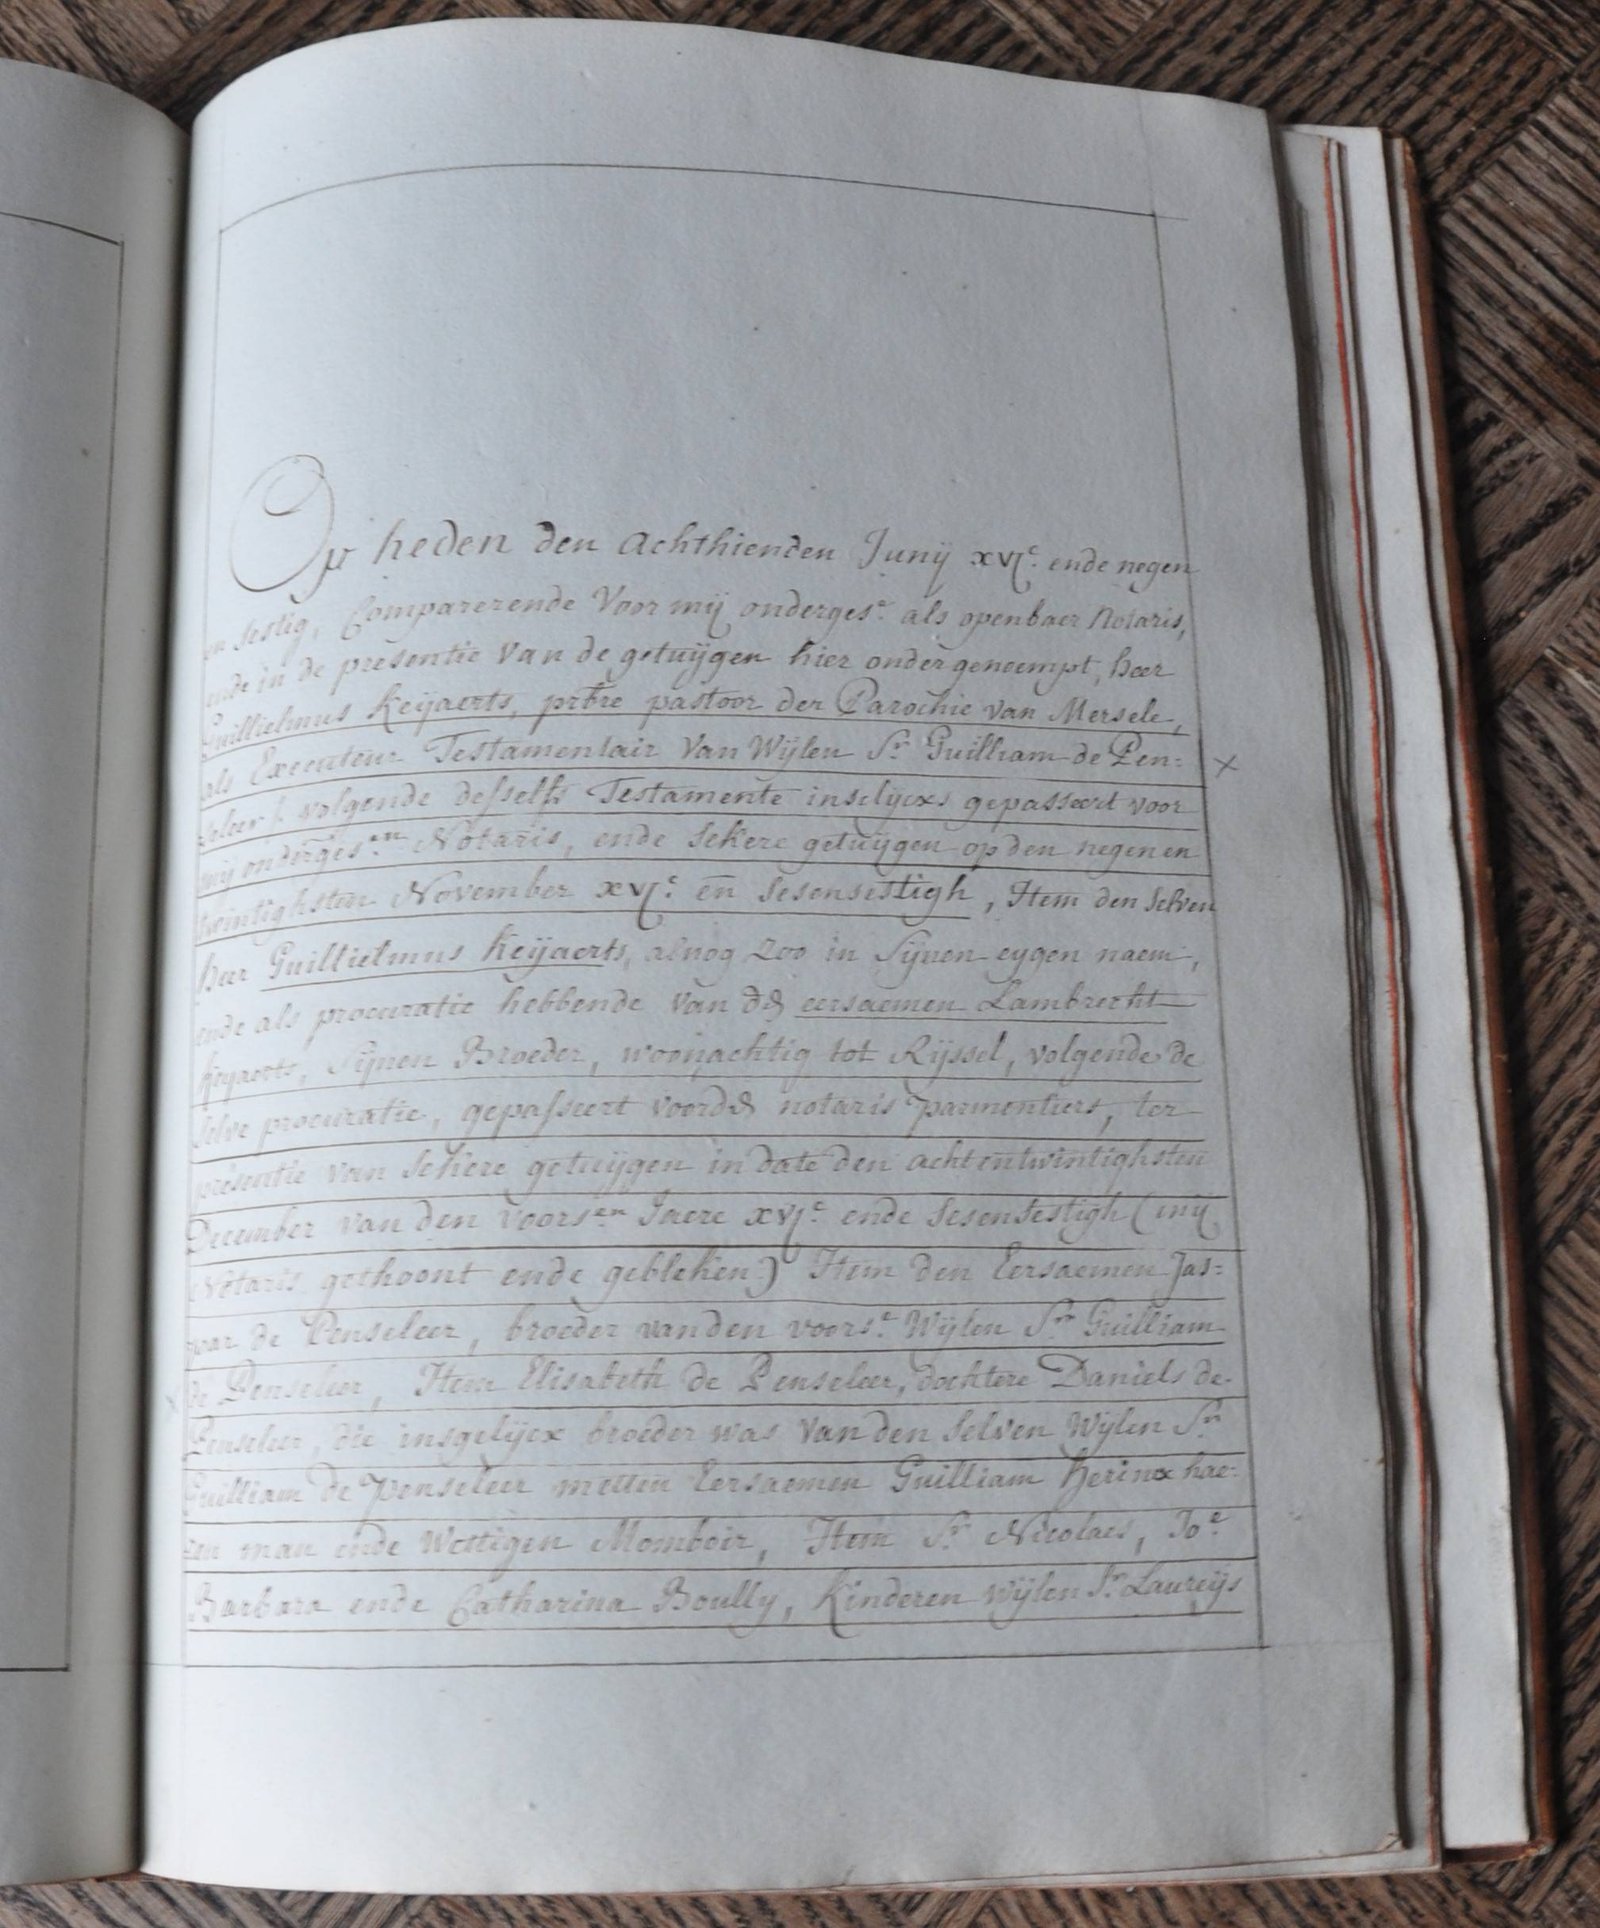 Op heden den achthienden Junij xvjc. ende negen
en sestig, Comparerende Voor mij onderges.e als openbaer Notaris,
ende in de presentie Van de getuijgen hier ondergenoempt, heer
Guillielmus Keijaerts, prbre pastoor der Parochie van Mersele,
als Executeur Testamentair Van Wijlen Sr. Guilliam de Pen=
seleer volgende desselfs Testamente inselijcxs gepasseert voor
mij onderges.en Notaris, ende sekere getuijgen op den negenen
twintighsten November xvjc. en sesensestigh, Item den selven
heer Guillielmus Keijaerts, alnog zoo in sijnen eygen naem,
ende als procuratie hebbende van d' eersaemen Lambrecht
Keyaerts, sijnen Broeder, woonachtig tot Rijssel, volgende de
selve procuratie, gepasseert voord' notaris parmentiers, ter
presentie van sekere getuijgen in date den achtentwintighsten
December van den voors.en Jaere xvjc. ende sesensestigh (mij
Notaris gethoont ende gebleken) Item den Eersaemen Jas=
par de Penseleer, broeder vanden voors.e Wijlen Sr. Guilliam
de Penseleer, Item Elisabeth de Penseleer, dochtere Daniels de
Penseleer, die insgelijcx broeder was van den selven Wijlen Sr.
Guilliam de penseleer metten Eersaemen Guilliam Herincx hae=
ren man ende Wettigen Momboir, Item Sr. Nicolaes, Jo.e
Barbara ende Catharina Boully, Kinderen wijlen Sr. Laureijs